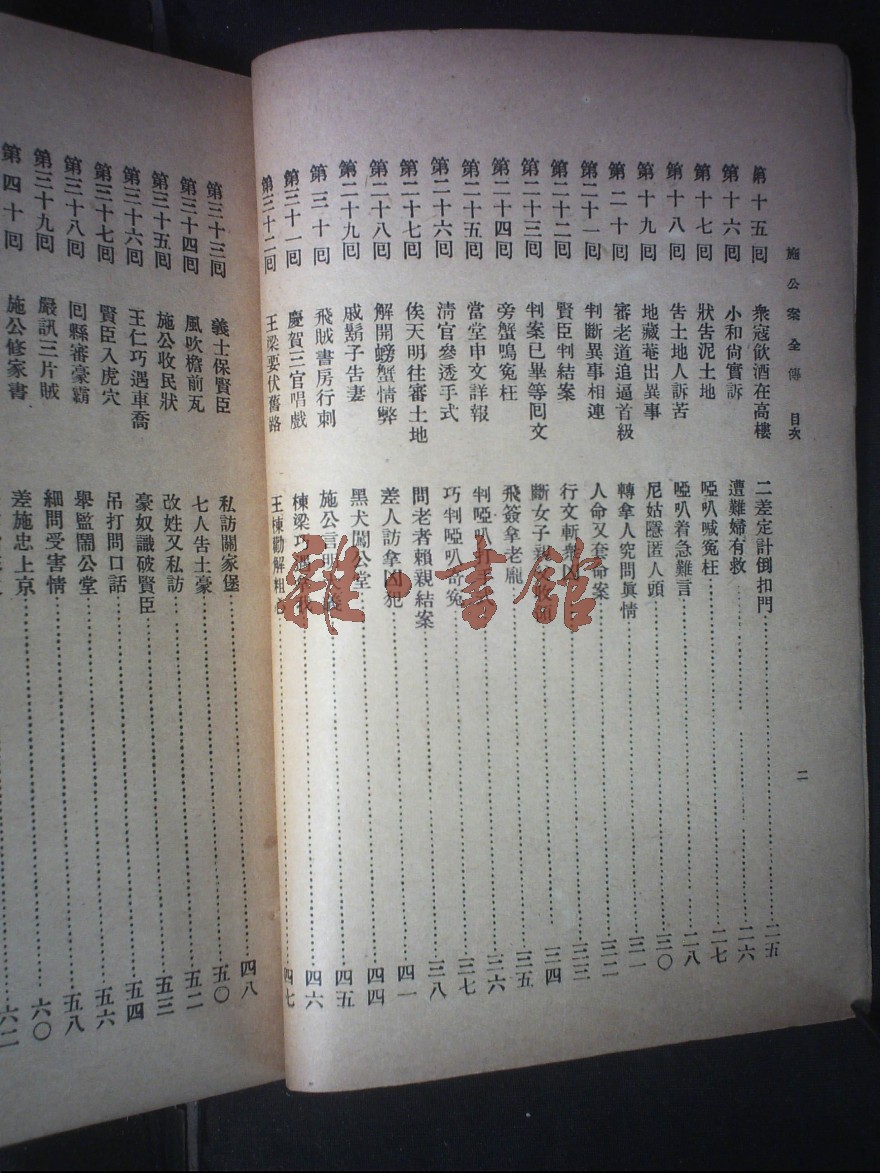 施公案全傳 目次 二
第十五囘 衆寇飮酒在高樓 二差定計倒扣門 二五
第十六囘 小和尙實訴 遭難婦有救 二六
第十七囘 狀告泥土地 啞叭喊冤枉 二七
第十八囘 告土地人訴苦 啞叭着急難言 二八
第十九囘 地藏菴出異事 尼姑隱匿人頭 三〇
第二十囘 審老道追逼首級 轉拿人究問眞情 三一
第二十一囘 判斷異事相連 人命又套命案 三二
第二十二囘 賢臣判結案 行文斬衆凶 三三
第二十三囘 判案已畢等囘文 斷女子親 三四
第二十四囘 旁蟹鳴冤枉 飛簽拿老龐 三五
第二十五囘 當堂申文詳報 判啞叭打手 三六
第二十六囘 淸官參透手式 巧判啞叭奇冤 三七
第二十七囘 俟天明往審土地 問老者賴親結案 三八
第二十八囘 解開螃蟹情弊 差人訪拿凶犯 四一
第二十九囘 戚鬍子告妻 黑犬闖公堂 四四
第三十囘 飛賊書房行刺 施公言明大義 四五
第三十一囘 慶賀三官唱戲 棟梁巧遇 四六
第三十二囘 王梁要伏舊路 王棟勸解粗心 四七
第三十三囘 義士保賢臣 私訪關家堡 四八
第三十四囘 風吹檐前瓦 七人告土豪 五〇
第三十五囘 施公收民狀 改姓又私訪 五二
第三十六囘 王仁巧遇車喬 豪奴識破賢臣 五三
第三十七囘 賢臣入虎穴 吊打問口話 五四
第三十八囘 囘縣審豪霸 舉監鬧公堂 五六
第三十九囘 嚴訊三片賊 細問受害情 五八
第四十囘 施公修家書 差施忠上京 六〇
六二
雜·書館